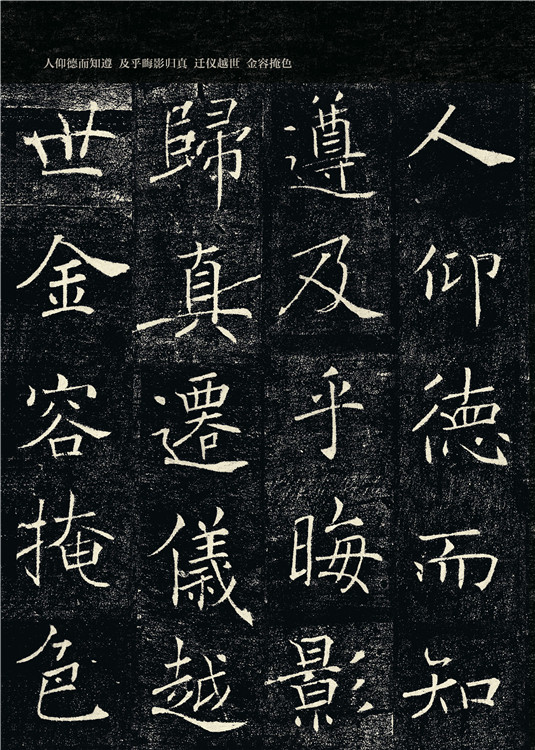 人仰德而知遵 及乎晦影归真 迁仪越世 金容掩色
人仰德而知
遵及乎晦影
歸真遷儀越
世金容掩色